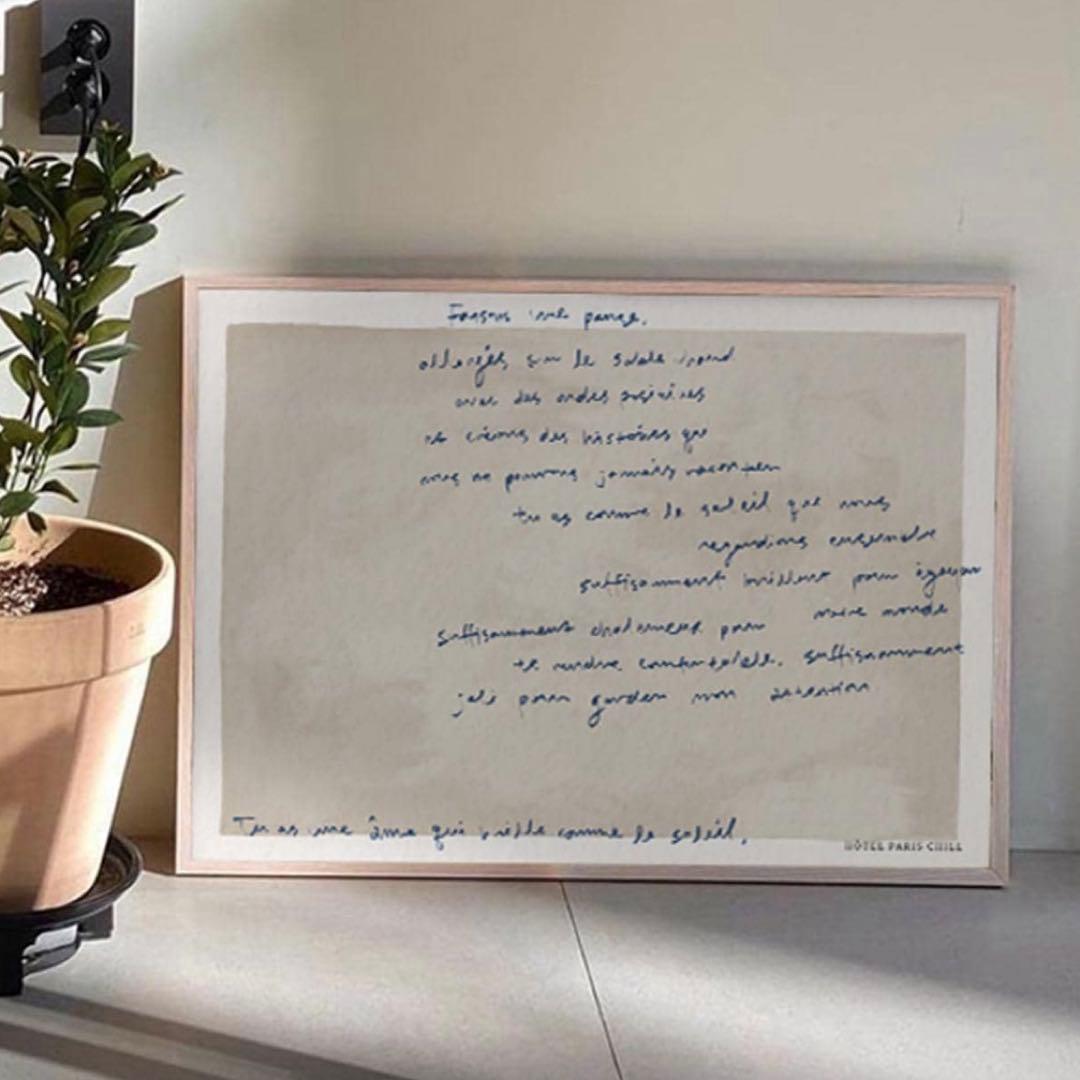 Faisons une pause.
allongés sur le sable chaud
avec des ondes positives
et créons des histoires que
nous ne pouvons jamais raconter
tu es comme le soleil que nous
regardions ensemble
suffisamment brillant pour égayer
notre monde
suffisamment chaleureux pour
te rendre confortable. suffisamment
joli pour garder mon attention
Tu as une âme qui brille comme le soleil.
HÔTEL PARIS CHILL